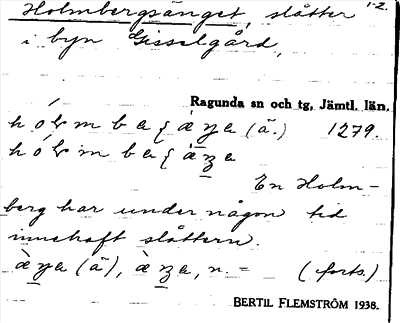 Holmbergsänget, slåtter 1-2.
i byn Gisselgård,
Ragunda sn och tg, Jämtl. län.
(ā.) 1279.
En Holm-
berg har under någon tid
innehaft slåttern.
(ā), n. = (forts.)
BERTIL FLEMSTRÖM 1938.